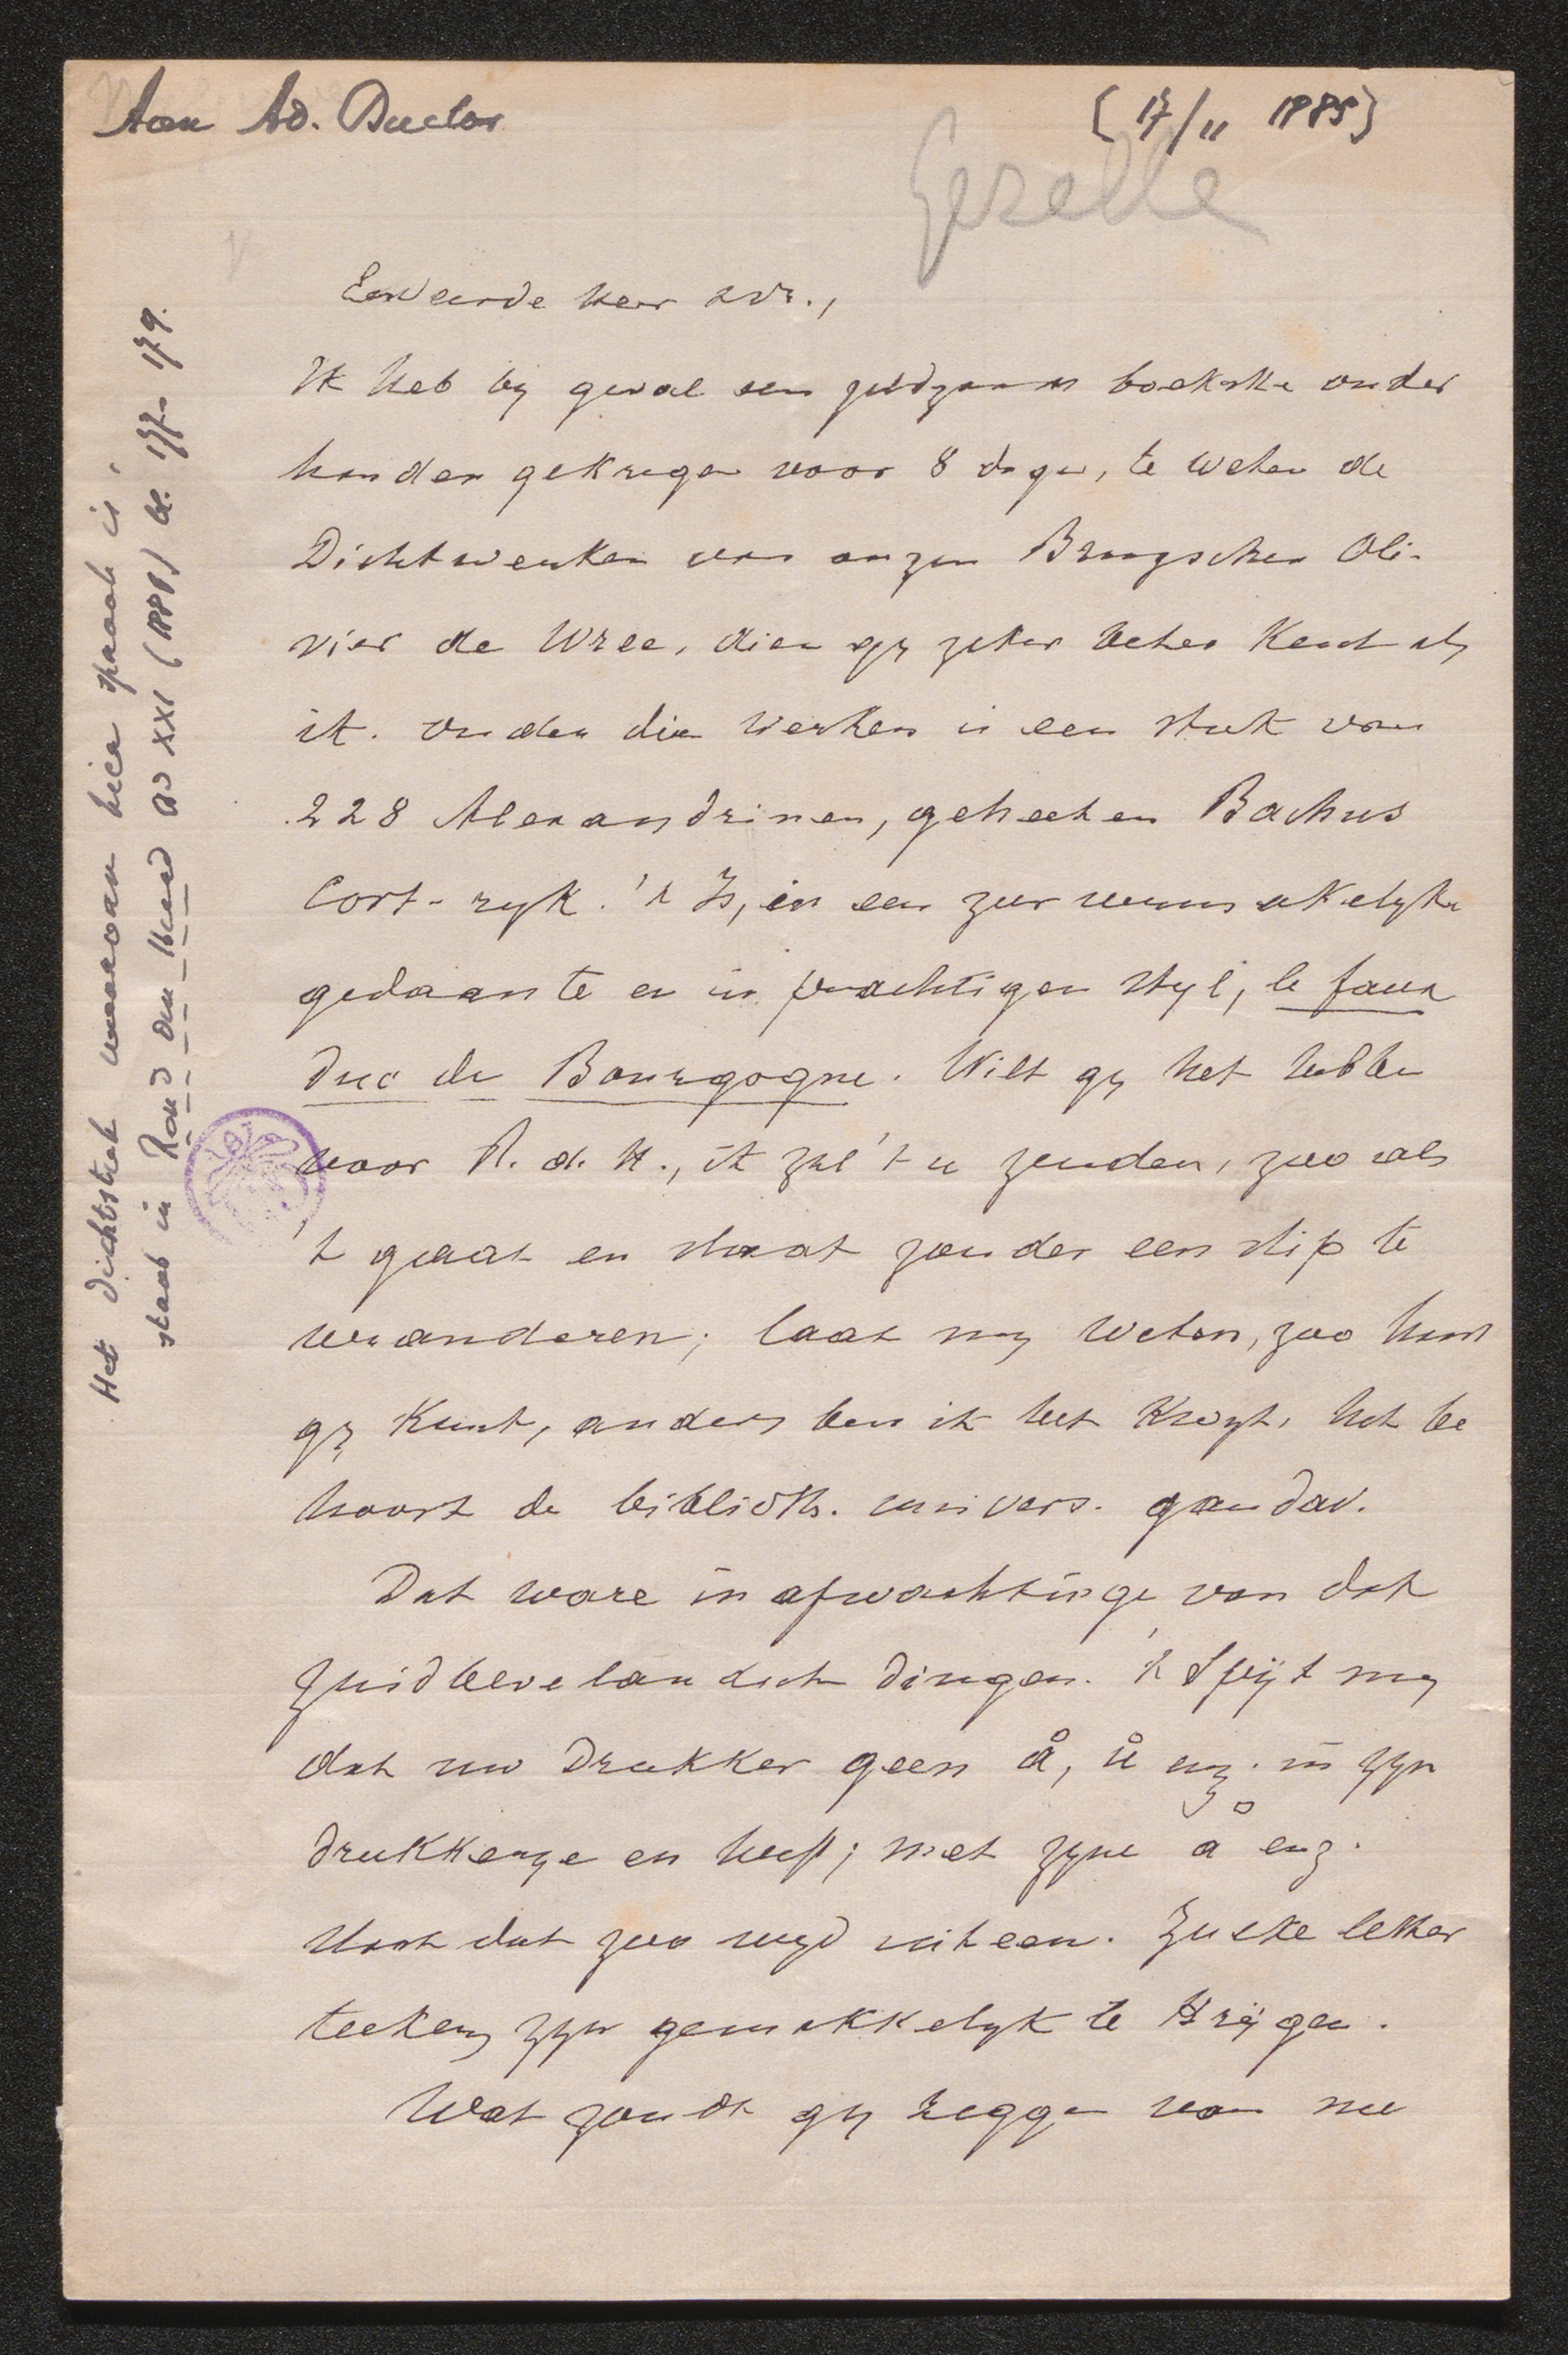 Aan Ad. Duclos
[17/11 1885]
Gezelle
Eerweerde heer adr.,
Ik heb bij geval een zeldzaam boekske onder
handen gekregen voor 8 dagen, te weten de
Dichtwerken van onzen Brugschen Oli-
vier de Wree, dien gy zeker beter kent als
ik. Onder die werken is een stuk van
228 Alexandrinen, geheeten Bachus
Cort-ryk. 't Is, in een zeer vermakelyke
gedaante en in prachtigen styl, le faux
duc de Bourgogne. Wilt gy het hebben
voor R. d. H., ik zal 't u zenden, zoo als
't gaat en staat zonder een stip te
veranderen; laat my weten, zoo haast
gy kunt, anders ben ik het kwyt, het be
hoort de biblioth. univers. gandav.
Dat ware in afwachtinge van dat
Zuidbevelandsch dingen. 't Spijt my
dat uw drukker geen å, ů enz. in zyn
drukkerye en heeft; met zyne a° enz.
staat dat zoo wyd uiteen. Zulke letter
teekens zyn gemakkelyk te krijgen.
Wat zoudt gy zeggen van nu
Het dichtstuk waarvan hier spraak is,
staat in Rond den Heerd XXI (1885) bl. 177-179.